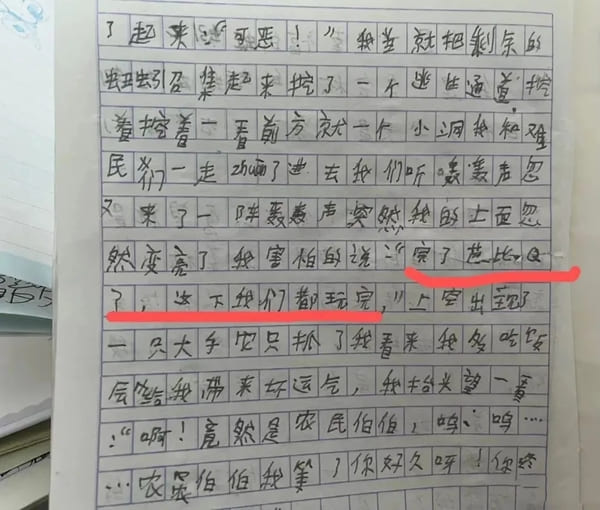 了起来:“可恶！”我当就把剩余的
蛐蛐了召集起来挖了一个逃生通道,挖
着挖着一看前方就一个小洞我和难
民们一走zhuan了进去我们听轰轰声忽
又来了一阵轰轰声突然我的上面忽
然变亮了我害怕的说:“完了芭比Q
了，这下我们都玩完,”上空出现了
一只大手农只抓了我看来我多吃饭
会给我带来好运气，我抬头望一看
:“啊！竟然是农民伯伯，呜呜…
…农民伯伯我等了你好久呀！你终